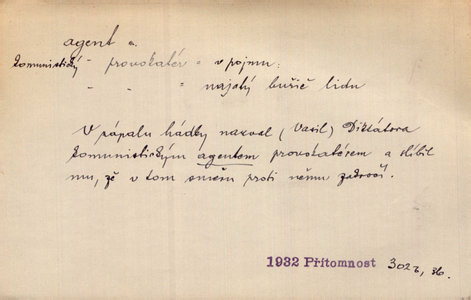 agent a.
komunistický - provokatér = v pojmu:
- - = najatý buřič lidu
V zápalu hádky nazval (Vasil) Diktátora
komunistickým agentem provokatérem a slíbil
mu, že v tom smyslu proti němu zakročí.
1932 Přítomnost 302